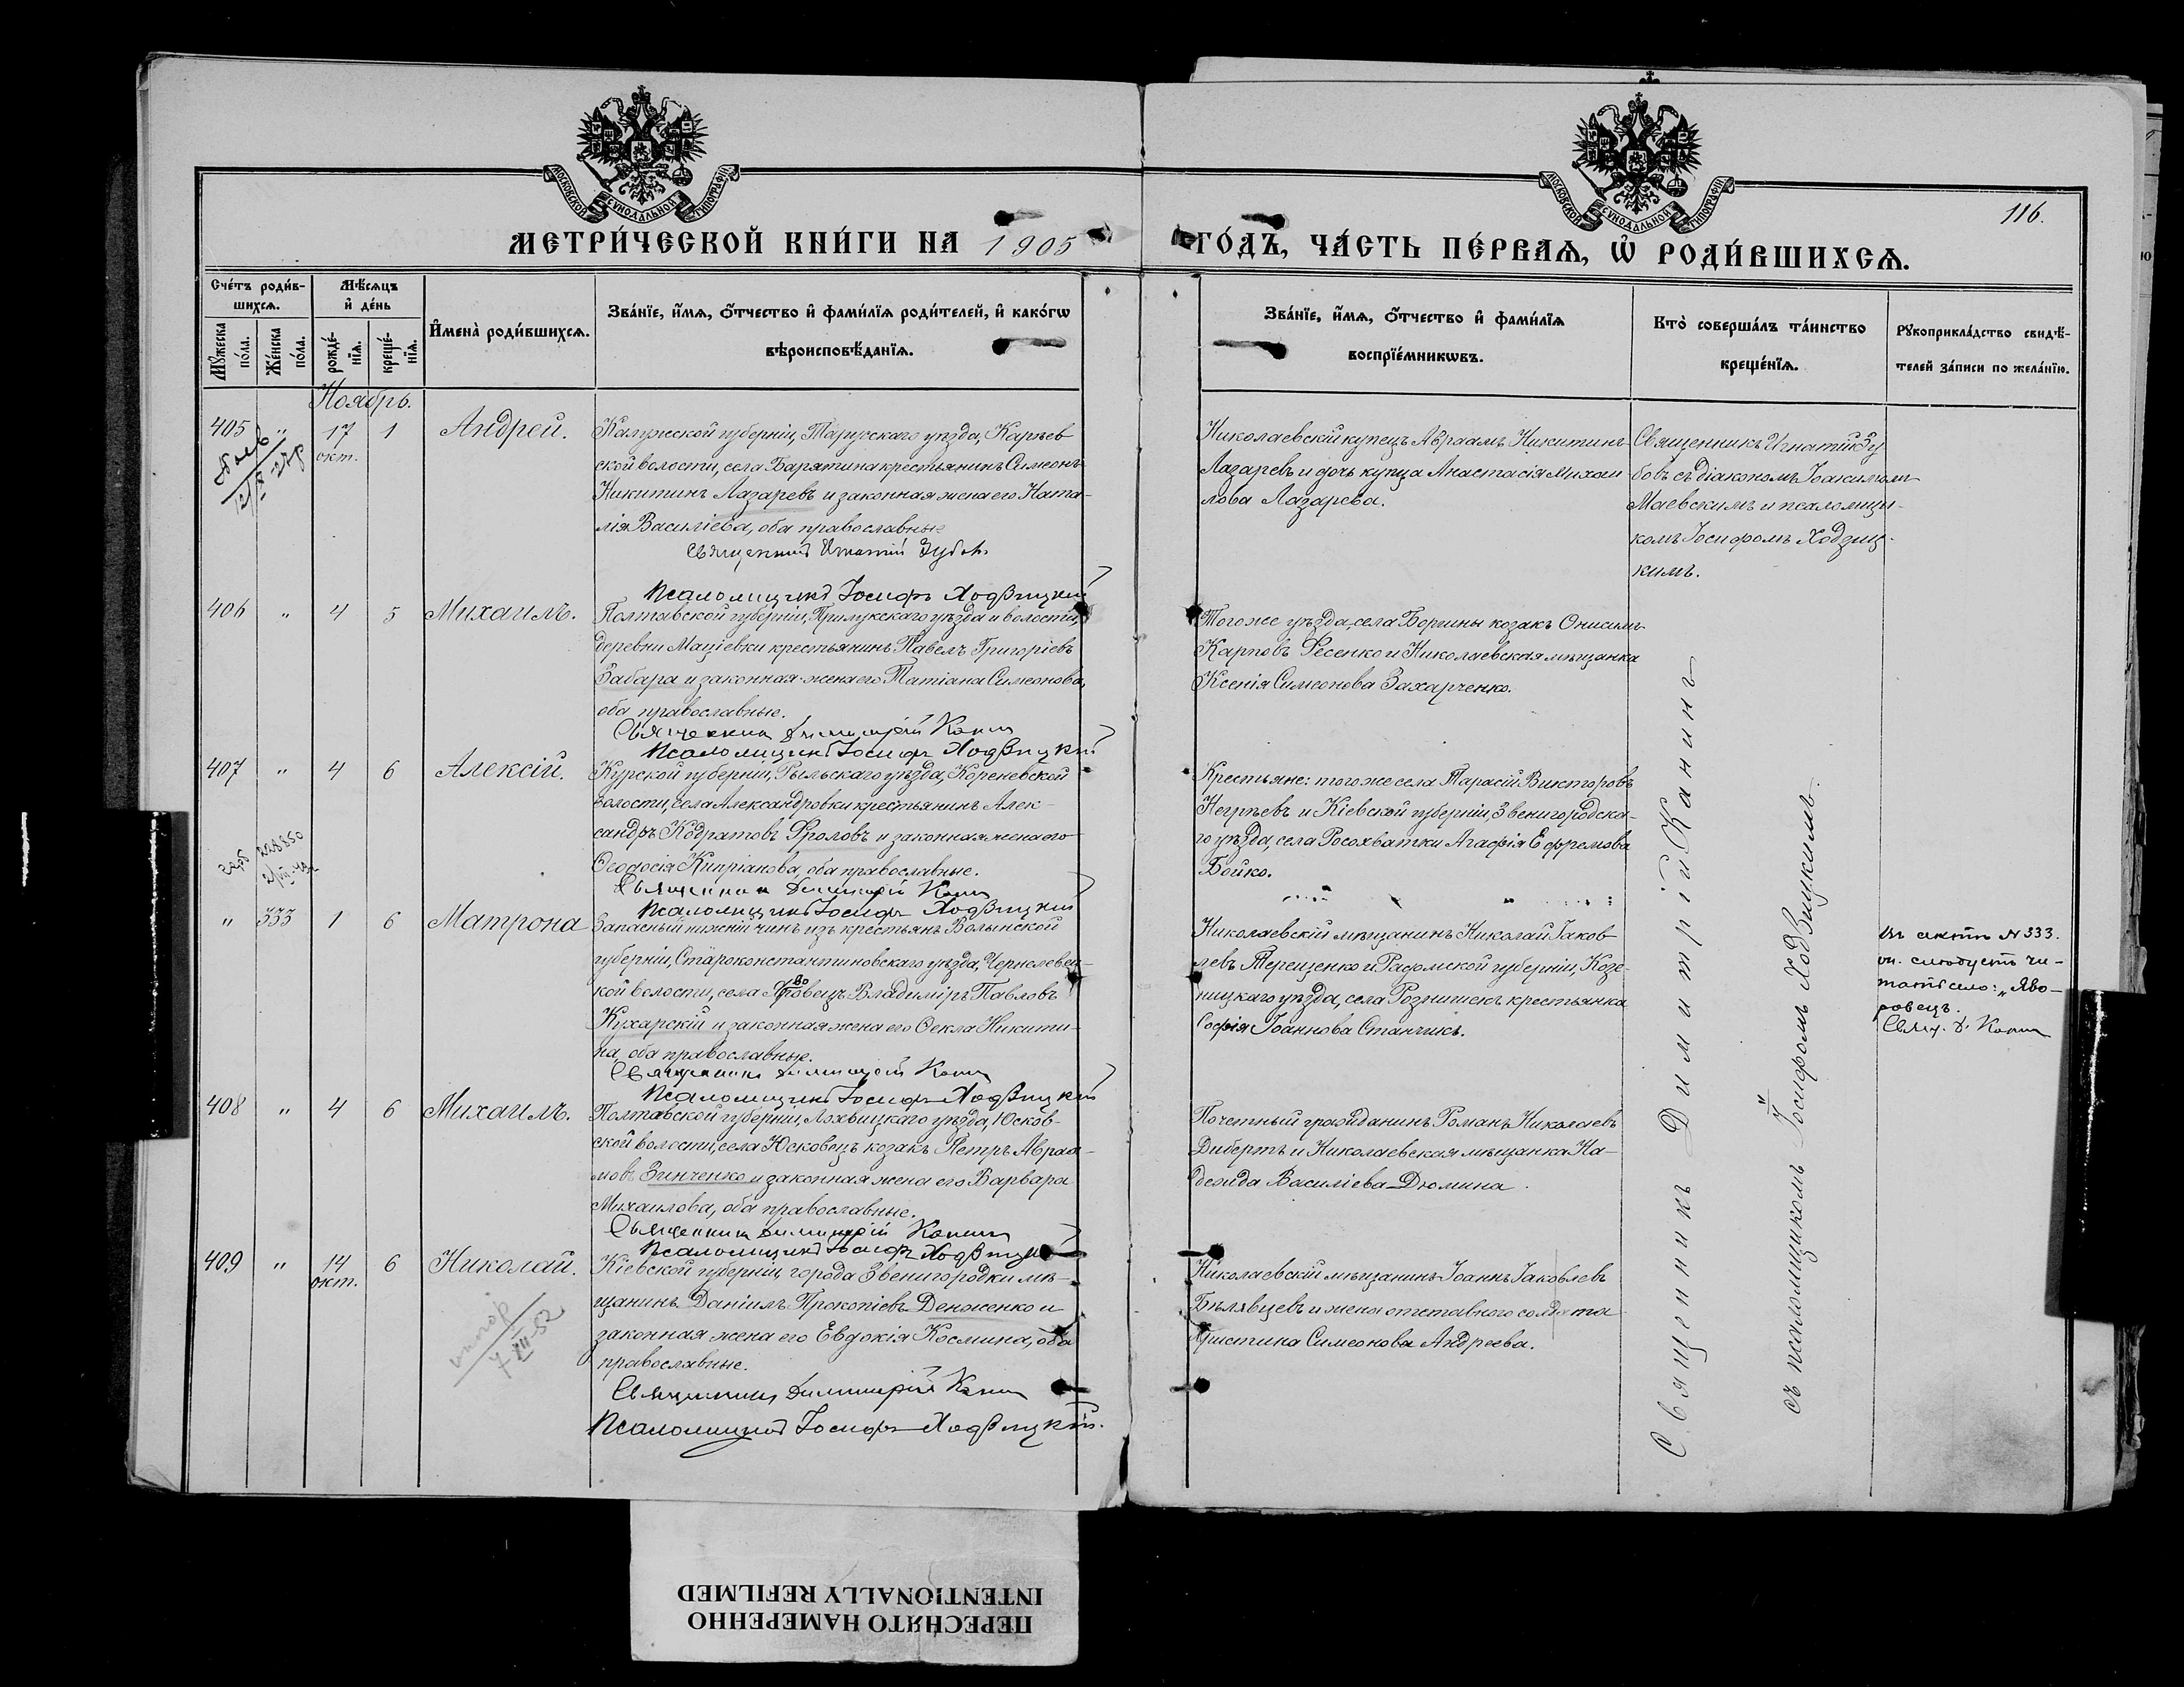 МОСКОВСКОЙ СУНОДАЛЬНОЙ ТИПОГРАФІИ
МОСКОВСКОЙ СУНОДАЛЬНОЙ ТИПОГРАФІИ
116.
МЕТРИ́ЧЕСКОЙ КНИ́ГИ НА 1905
ГО́ДЪ, ЧА́СТЬ ПЕ́РВАѦ, Ѡ҆ РОДИ́ВШИХСѦ.
Сче́тъ роди́в-
шихсѧ.
Мꙋ́жеска по́ла.
Же́нска по́ла.
Мѣ́сѧцъ
и҆ де́нь
рожде́-
нїѧ.
креще́-
нїѧ.
И҆мена̀ роди́вшихсѧ.
Зва́нїе, и҆́мѧ, ѻ҆́тчество и҆ фами́лїѧ роди́телей, и҆ како́гѡ
вѣроисповѣ́данїѧ.
Зва́нїе, и҆́мѧ, ѻ҆́тчество и҆ фами́лїѧ
воспрїе́мникѡвъ.
Кто̀ соверша́лъ та́инство
креще́нїѧ.
Рꙋкоприкла́дство свидѣ́-
телей за́писи по жела́нїю.
Ноябрь.
405 " 17 окт. 1 Андрей.
Калужской губерніи, Тарусскаго уѣзда, Карѣев-
ской волости, села Барятина крестьянинъ Симеонъ
Никитинъ Лазаревъ и законная жена его Ната-
лія Василіева, оба православные
Священникъ Игнатій Зубовъ
Псаломщикъ Іосифъ Ходзицкій
Николаевскій купецъ Авраамъ Никитинъ
Лазаревъ и дочь купца Анастасія Михаи
лова Лазарева.
Священникъ Игнатій Зу
бовъ съ діакономъ Іоакимомъ
Маевскимъ и псаломщи-
комъ Іосифомъ Ходзиц-
кимъ.
406 " 4 5 Михаилъ.
Полтавской губерніи, Прилукскаго уѣзда и волости,
деревни Маціевки крестьянинъ Павелъ Григоріевъ
Забара и законная жена его Татіана Симеонова,
оба православные.
Священникъ Димитрій Канинъ
Псаломщикъ Іосифъ Ходзицкій
Того же уѣзда, села Боршны козакъ Онисимъ
Карповъ Фесенко и Николаевская мѣщанка
Ксенія Симеонова Захарченко.
407 " 4 6 Алексій.
Курской губерніи, Рыльскаго уѣзда, Кореневской
волости, села Александровки крестьянинъ Алек-
сандръ Кодратовъ Фроловъ и законная жена его
Ѳеодосія Кипріанова, оба православные.
Священникъ Димитрій Канинъ
Псаломщикъ Іосифъ Ходзицкій
Крестьяне: того же села Тарасій Викторовъ
Негрѣевъ и Кіевской губерніи, Звенигородска-
го уѣзда, села Росоховатки Агафія Ефремова
Бойко.
" 333 1 6 Матрона
Запасный нижній чинъ изъ крестьянъ Волынской
губерніи, Староконстантиновскаго уѣзда, Чернелевец-
кой волости, села Яровецъ Владиміръ Павловъ
во
Кухарскій и законная жена его Ѳекла Никити-
на, оба православные.
Священникъ Димитрій Канинъ
Псаломщикъ Іосифъ Ходзицкій
Николаевскій мѣщанинъ Николай Іаков
левъ Терещенко и Радомской губерніи, Козе-
ницкаго уѣзда, села Рознишекъ крестьянка
Софія Іоаннова Станчикъ.
Въ актѣ № 333.
слѣдуетъ чи-
тать село: "Яво-
ровецъ.
Свящ. Д. Канинъ
408 " 4 6 Михаилъ.
Полтавской губерніи, Лохвицкаго уѣзда, Юсков-
ской волости, села Юсковецъ козакъ Петръ Авраа-
мовъ Зинченко и законная жена его Варвара
Михаилова, оба православные.
Священникъ Димитрій Канинъ
Псаломщикъ Іосифъ Ходзицкій
Почетный гражданинъ Романъ Николаевъ
Дибертъ и Николаевская мѣщанка На-
дежда Василіева Дюмина.
409 " 14 окт. 6 Николай.
Кіевской губерніи, города Звенигородки мѣ-
щанинъ Даніилъ Прокопіевъ Денженко и
законная жена его Евдокія Космина, оба
православные.
Священникъ Димитрій Канинъ
Псаломщикъ Іосифъ Ходзицкій.
Николаевскій мѣщанинъ Іоаннъ Іаковлевъ
Бѣлявцевъ и жена отставного солдата
Христина Симеонова Андреева.
Священникъ Димитрій Канинъ
съ псаломщикомъ Іосифомъ Ходзицкимъ.
ПЕРЕСНЯТО НАМЕРЕННО
INTENTIONALLY REFILMED